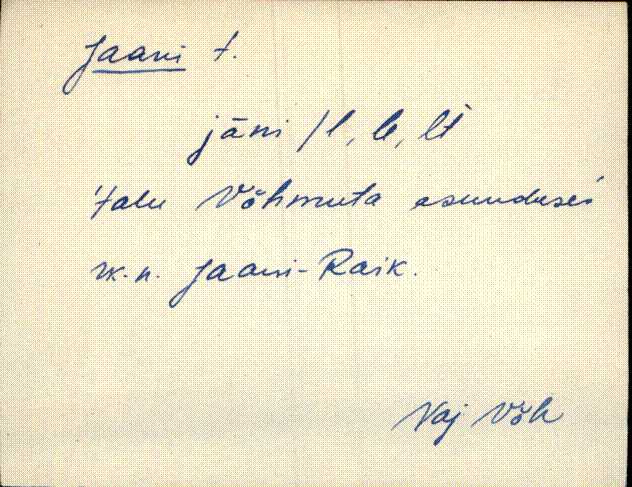 Jaani t.
jāni /l, le, lt
'talu Võhmuta asunduses
rk.-n. Jaani-Raik.
Vaj Võh